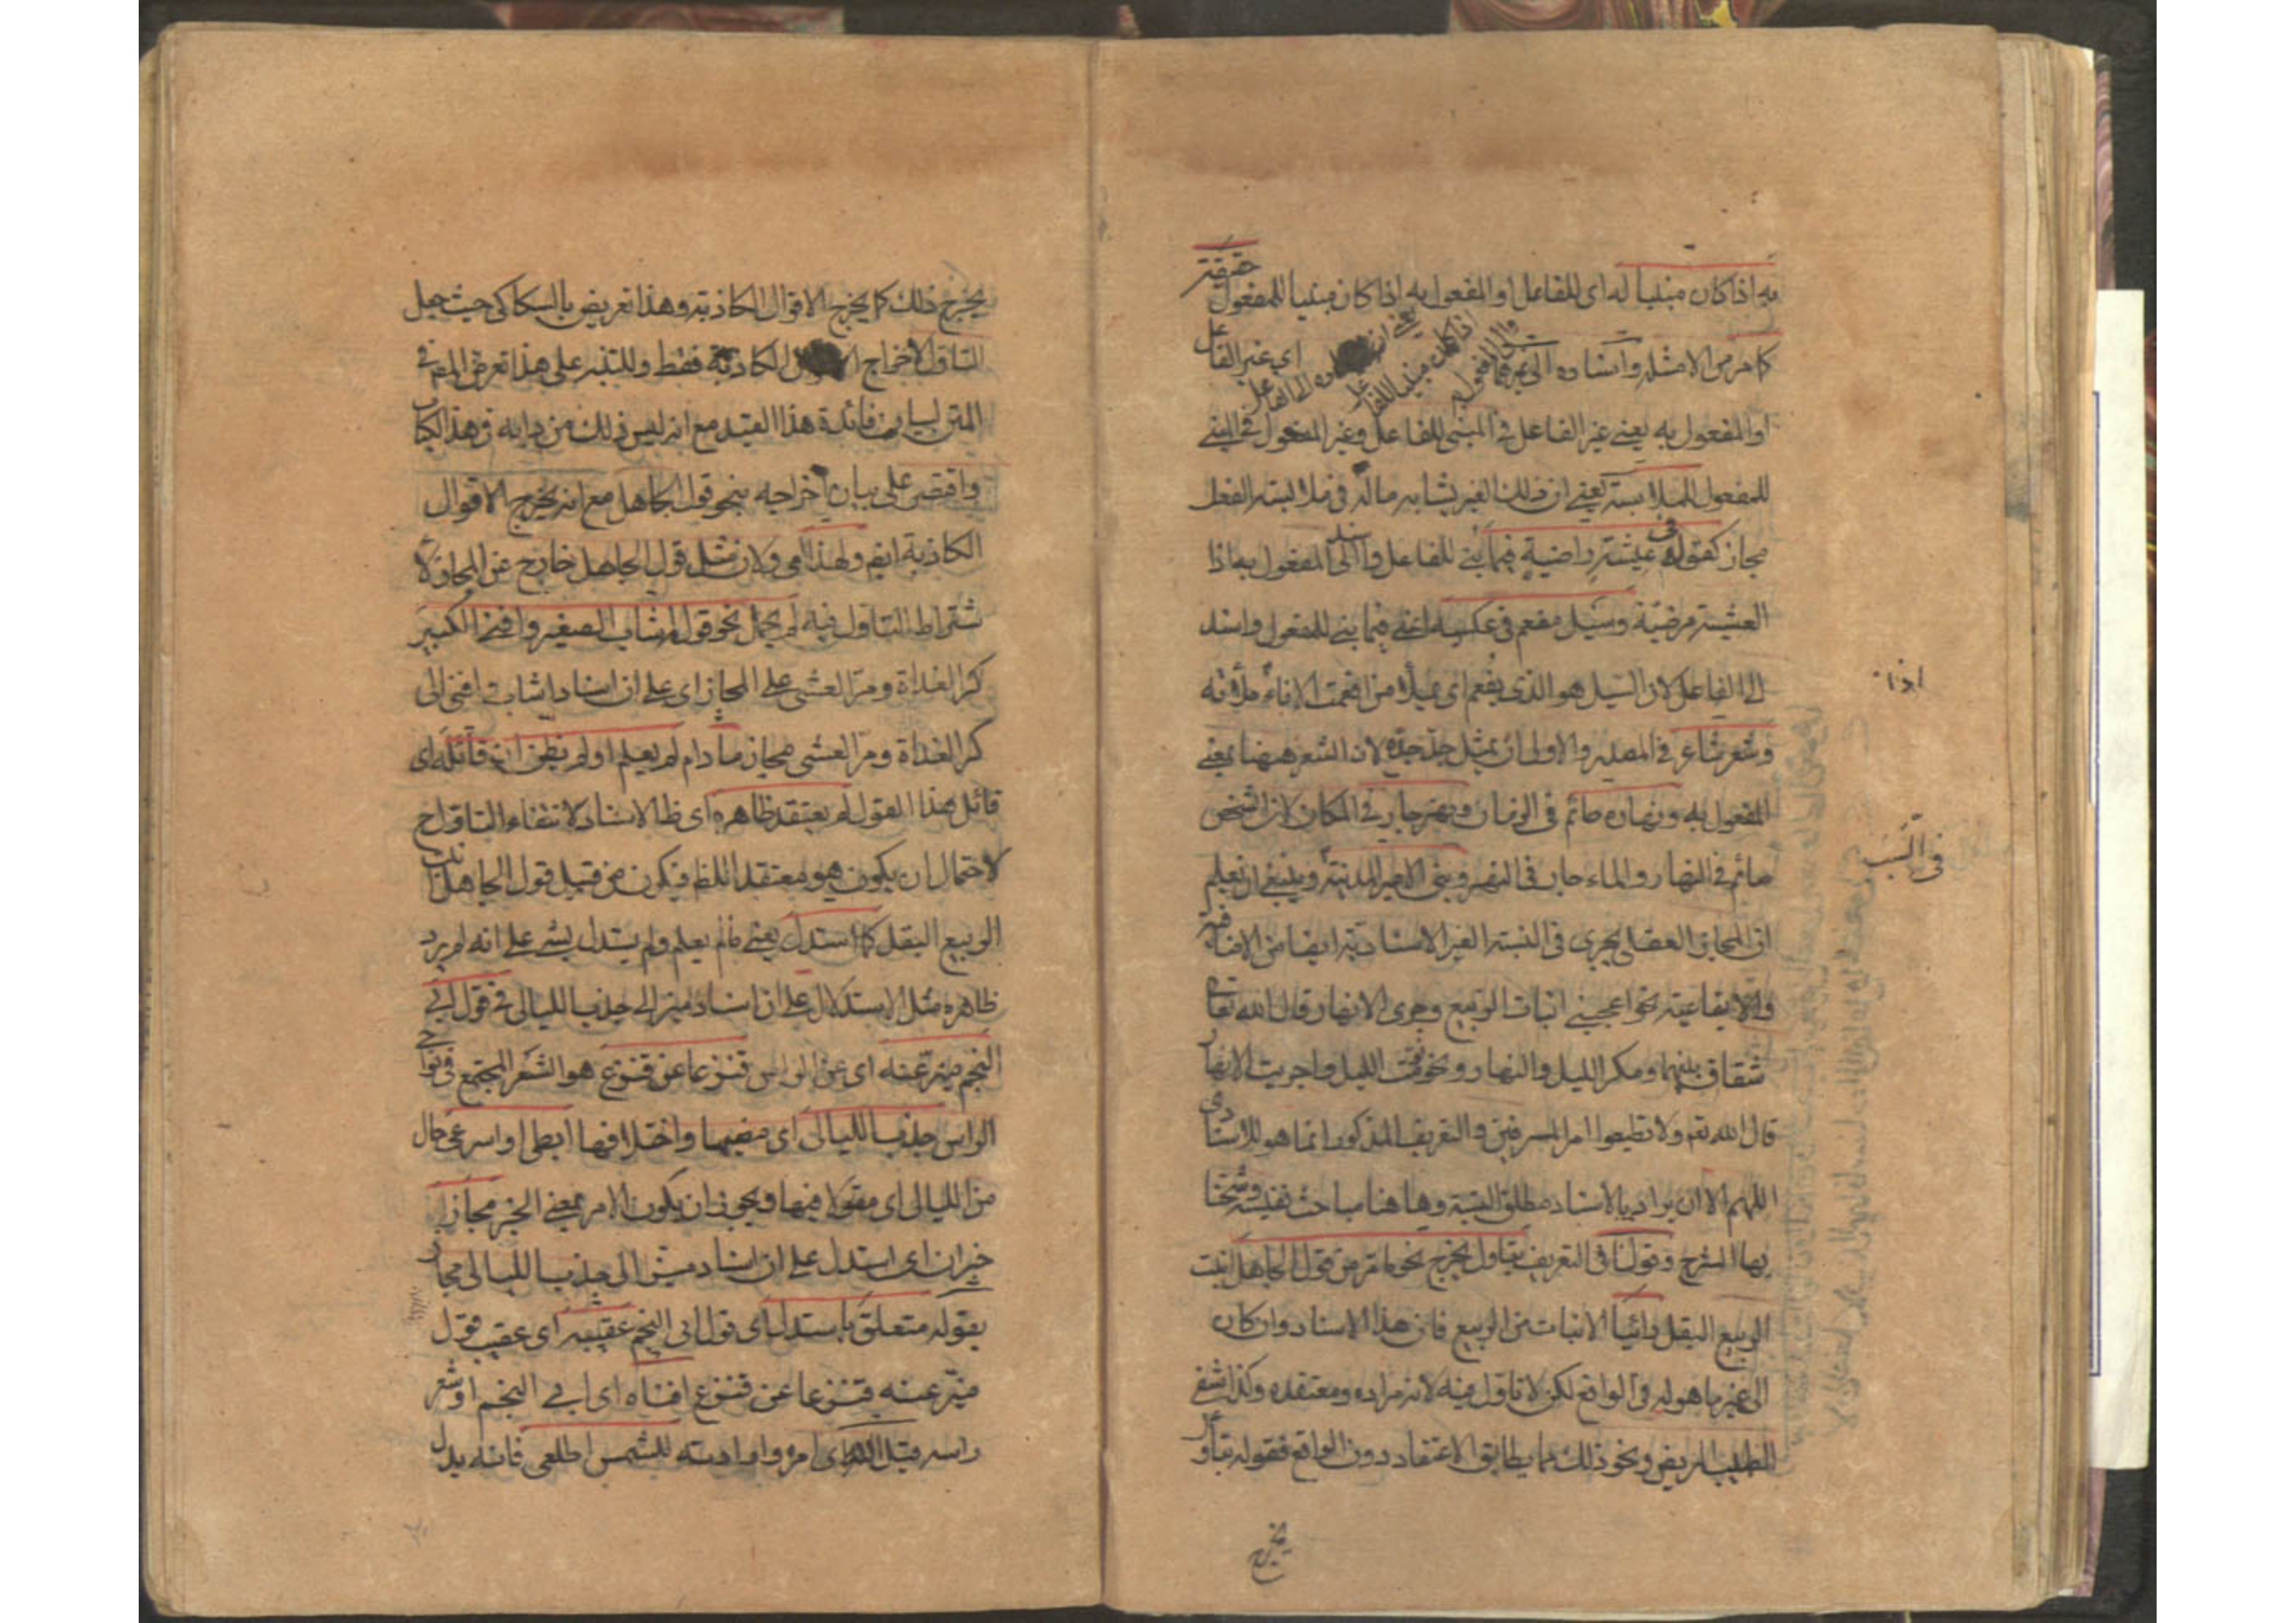 به اذا كان مبنيا له اى للفاعل او المفعول به اذا كان مبنيا للمفعول حقيقة
كما مر من الامثلة واسناده الى غيرهما اى غير الفاعل
او المفعول به يعنى غير الفاعل فى المبنى للفاعل وغير المفعول فى المبنى
للمفعول للملابسة يعنى ان ذلك الغير يشابه ماله فى ملابسة الفعل
مجاز كقولهم عيشة راضية فيما بنى للفاعل واسند الى المفعول به اذا
العيشة مرضية وسيل مفعم فى عكسه اعنى فيما بنى للمفعول واسند
الى الفاعل لان السيل هو الذى يفعم اى يملأ من افعمت الاناء ملأته
وشعر شاعر فى المصدر والاولى ان يمثل بجد جده لان الشعر ههنا بمعنى
المفعول به ونهاره صائم فى الزمان ونهر جار فى المكان لان الشخص
صائم فى النهار والماء جار فى النهر وبنى الامير المدينة وينبغى ان يعلم
ان المجاز العقلى يجرى فى النسبة الغير الاسنادية ايضا من الاضافية
والايقاعية نحو اعجبنى انبات الربيع وجرى الانهار قال الله تعا
شقاق بينهما ومكر الليل والنهار ونحو نومت الليل واجريت الانهار
قال الله تعم ولا تطيعوا امر المسرفين والتعريف المذكور انما هو للاسنادى
اللهم الا ان يراد بالاسناد مطلق النسبة وها هنا مباحث نفيسة وشحنا
بها الشرح وقولنا فى التعريف بتاول يخرج نحو ما مر من قول الجاهل انبت
الربيع البقل رائيا الانبات من الربيع فان هذا الاسناد وان كان
الى غير ما هو له فى الواقع لكن لا تاول فيه لانه مراده ومعتقده وكذا شفى
الطبيب المريض ونحو ذلك مما يطابق الاعتقاد دون الواقع فقوله بتاول
يخرج
اذا
فى السبب
يخرج ذلك كما يخرج الاقوال الكاذبة وهذا تعريض بالسكاكى حيث جعل
التاول لاخراج الكاذبة فقط وللتنبيه على هذا تعرض المص فى
المتن لبيان فائدة هذا القيد مع انه ليس ذلك من دابه فى هذا الكتاب
واقتصر على بيان اخراجه بنحو قول الجاهل مع انه يخرج الاقوال
الكاذبة ايضا ولهذا اى ولان مثل قول الجاهل خارج عن المجاز لا
شتراط التاول فيه لم يحمل نحو قوله اشاب الصغير وافنى الكبير
كر الغداة ومر العشى على المجاز اى على ان اسناد اشاب وافنى الى
كر الغداة ومر العشى مجاز ما دام لم يعلم او لم يظن ان قائله اى
قائل هذا القول لم يعتقد ظاهره اى ظا الاسناد لانتفاء التاول ح
لاحتمال ان يكون هو معتقدا للظ فيكون من قبيل قول الجاهل انبت
الربيع البقل كما استدل يعنى مالم يعلم ولم يستدل بشى على انه لم يرد
ظاهره مثل الاستدلال على ان اسناد ميز الى جذب الليالى فى قول ابى
النجم ميز عنه اى عن الراس قنزعا عن قنزع هو الشعر المجتمع فى نواحى
الراس جذب الليالى اى مضيها واختلافها ابطى او اسرعى حال
من الليالى اى مقولا فيها ويجوز ان يكون الامر بمعنى الخبر مجاز
خبر ان اى استدل على ان اسناد ميز الى جذب الليالى مجاز
بقوله متعلق باستدل اى قول ابى النجم عقيبه اى عقيب قول
ميز عنه قنزعا عن قنزع افناه اى ابى النجم او شعر
راسه قيل الله اى امره وارادته للشمس اطلعى فانه يدل